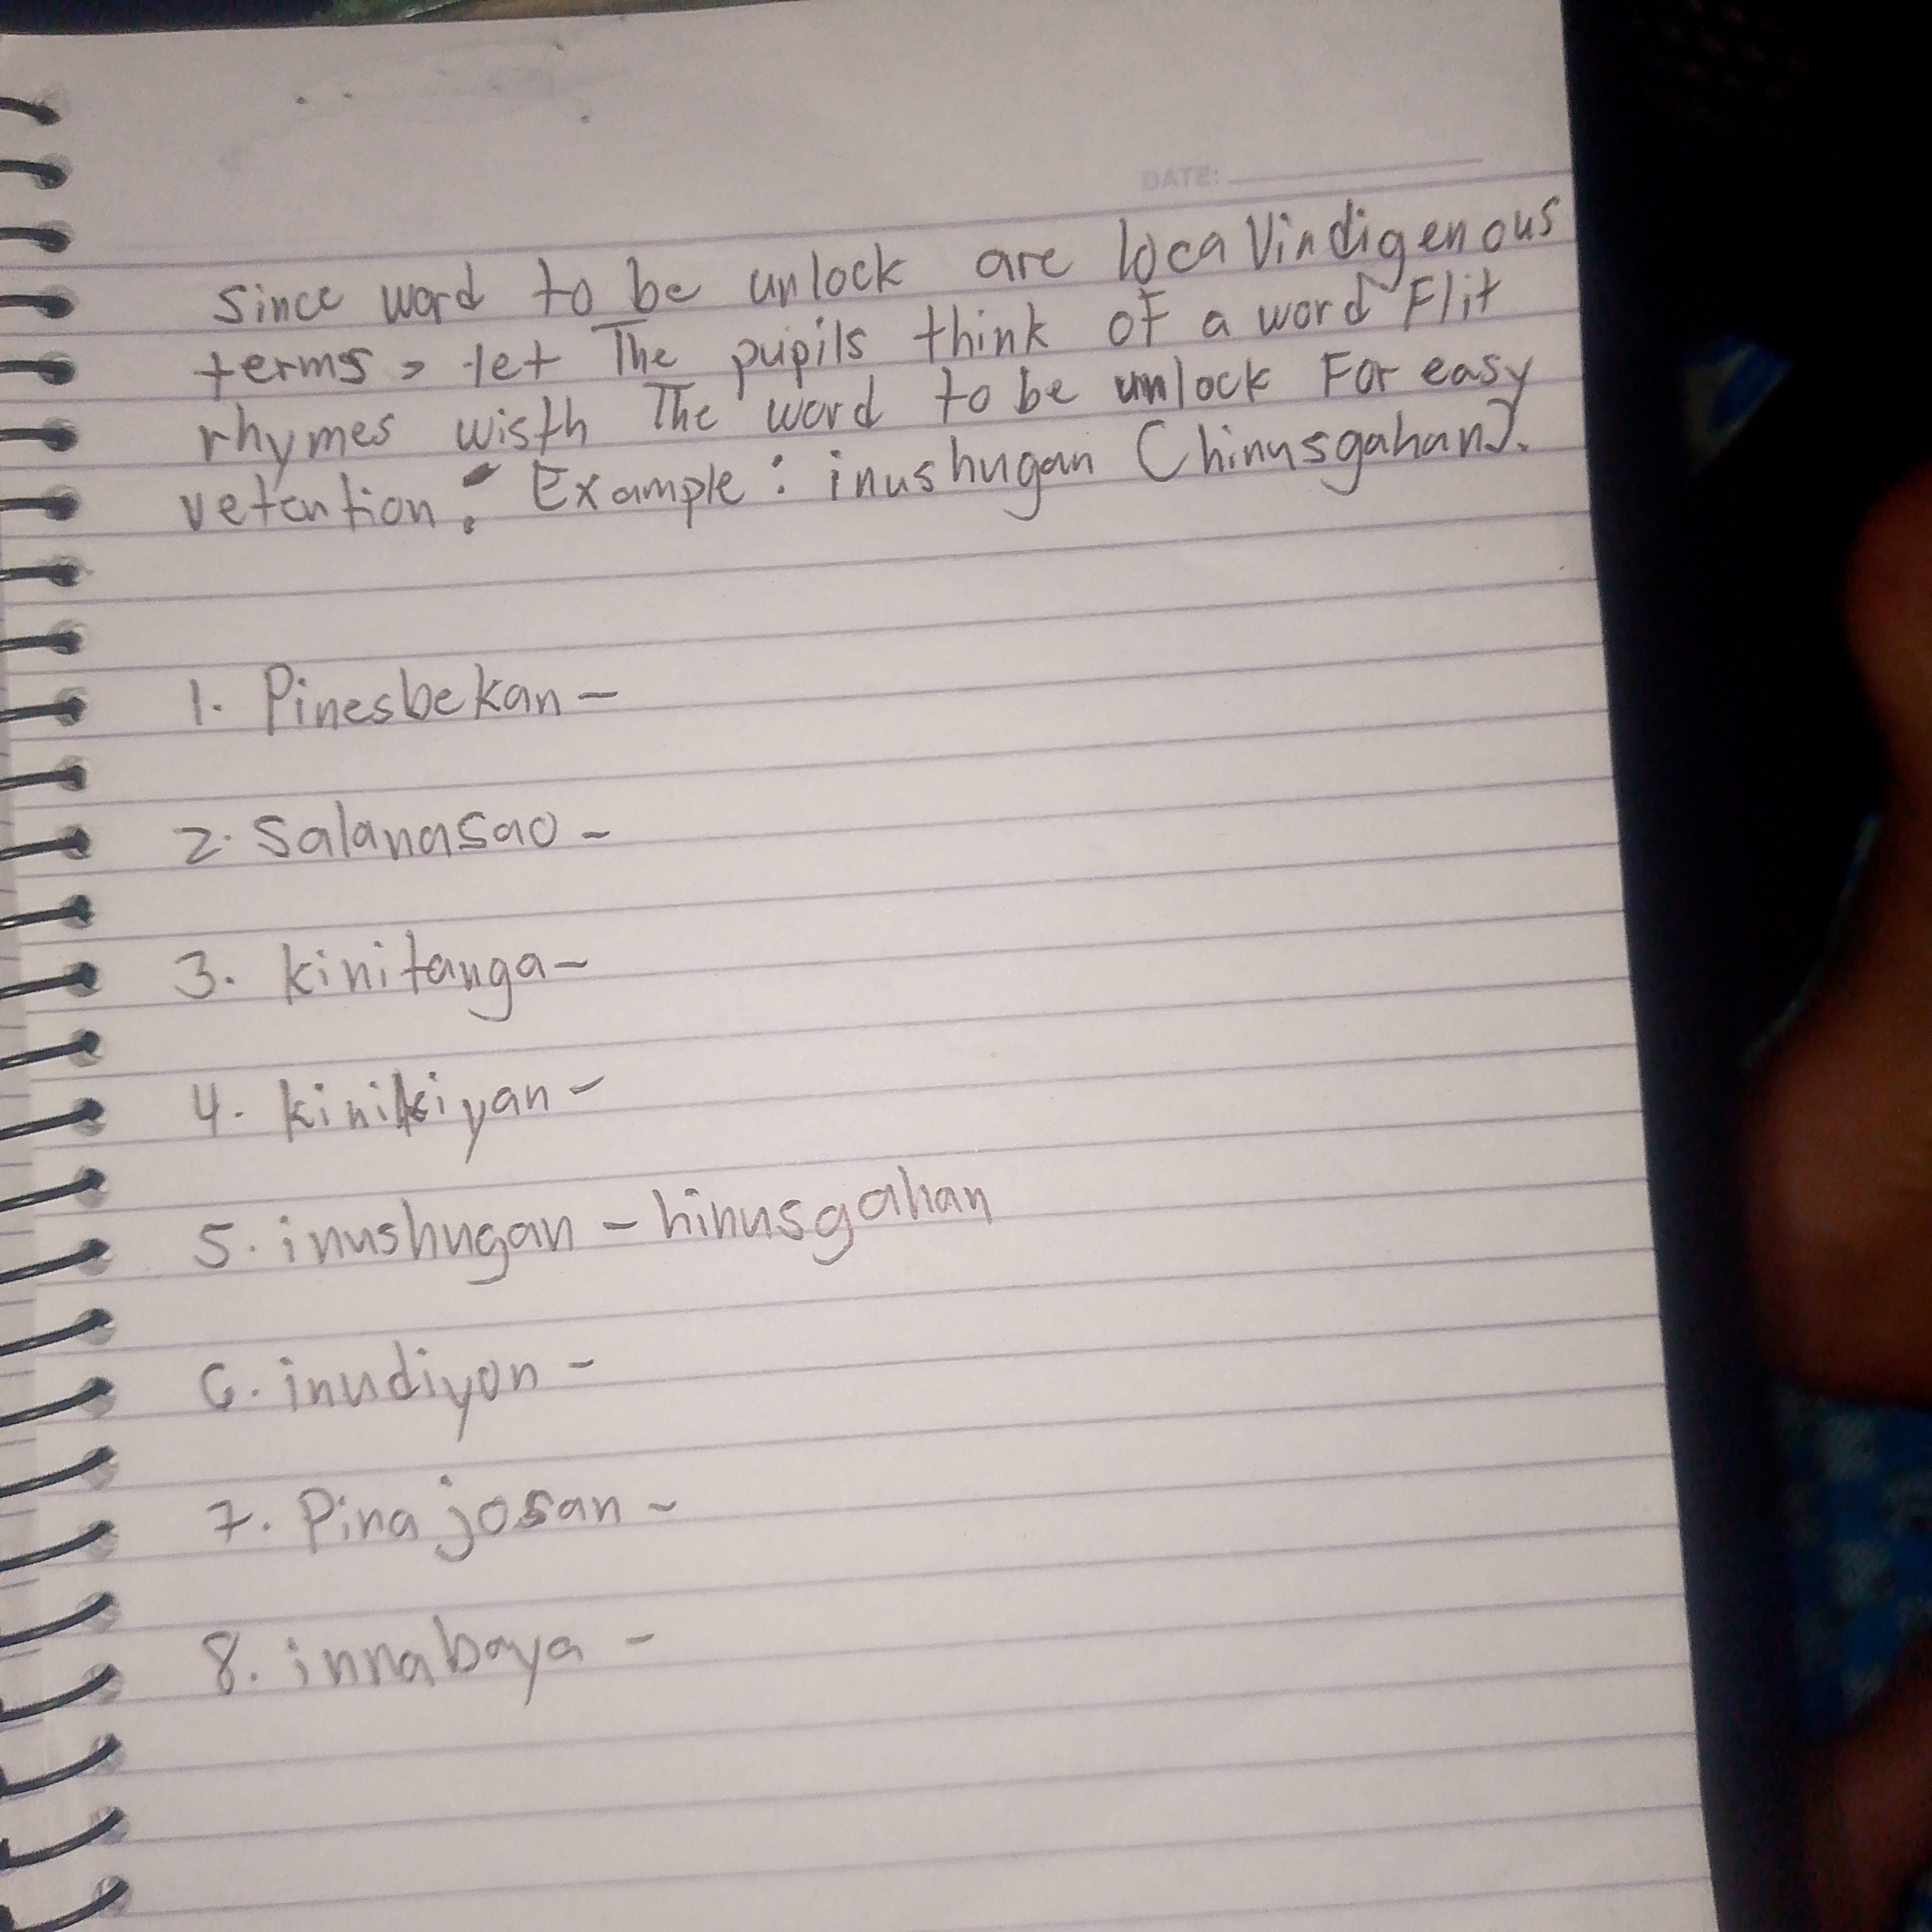 DATE:
since word to be unlock are local/indigenous
terms, let The pupils think of a word Flit
rhymes wisth The word to be unlock For easy
vetention. Example: inushugan (hinusgahan).
1. Pinesbekan -
2. Salanasao -
3. kinitanga -
4. kinikiyan -
5. inushugan - hinusgahan
6. inudiyon -
7. Pinajosan -
8. innabaya -